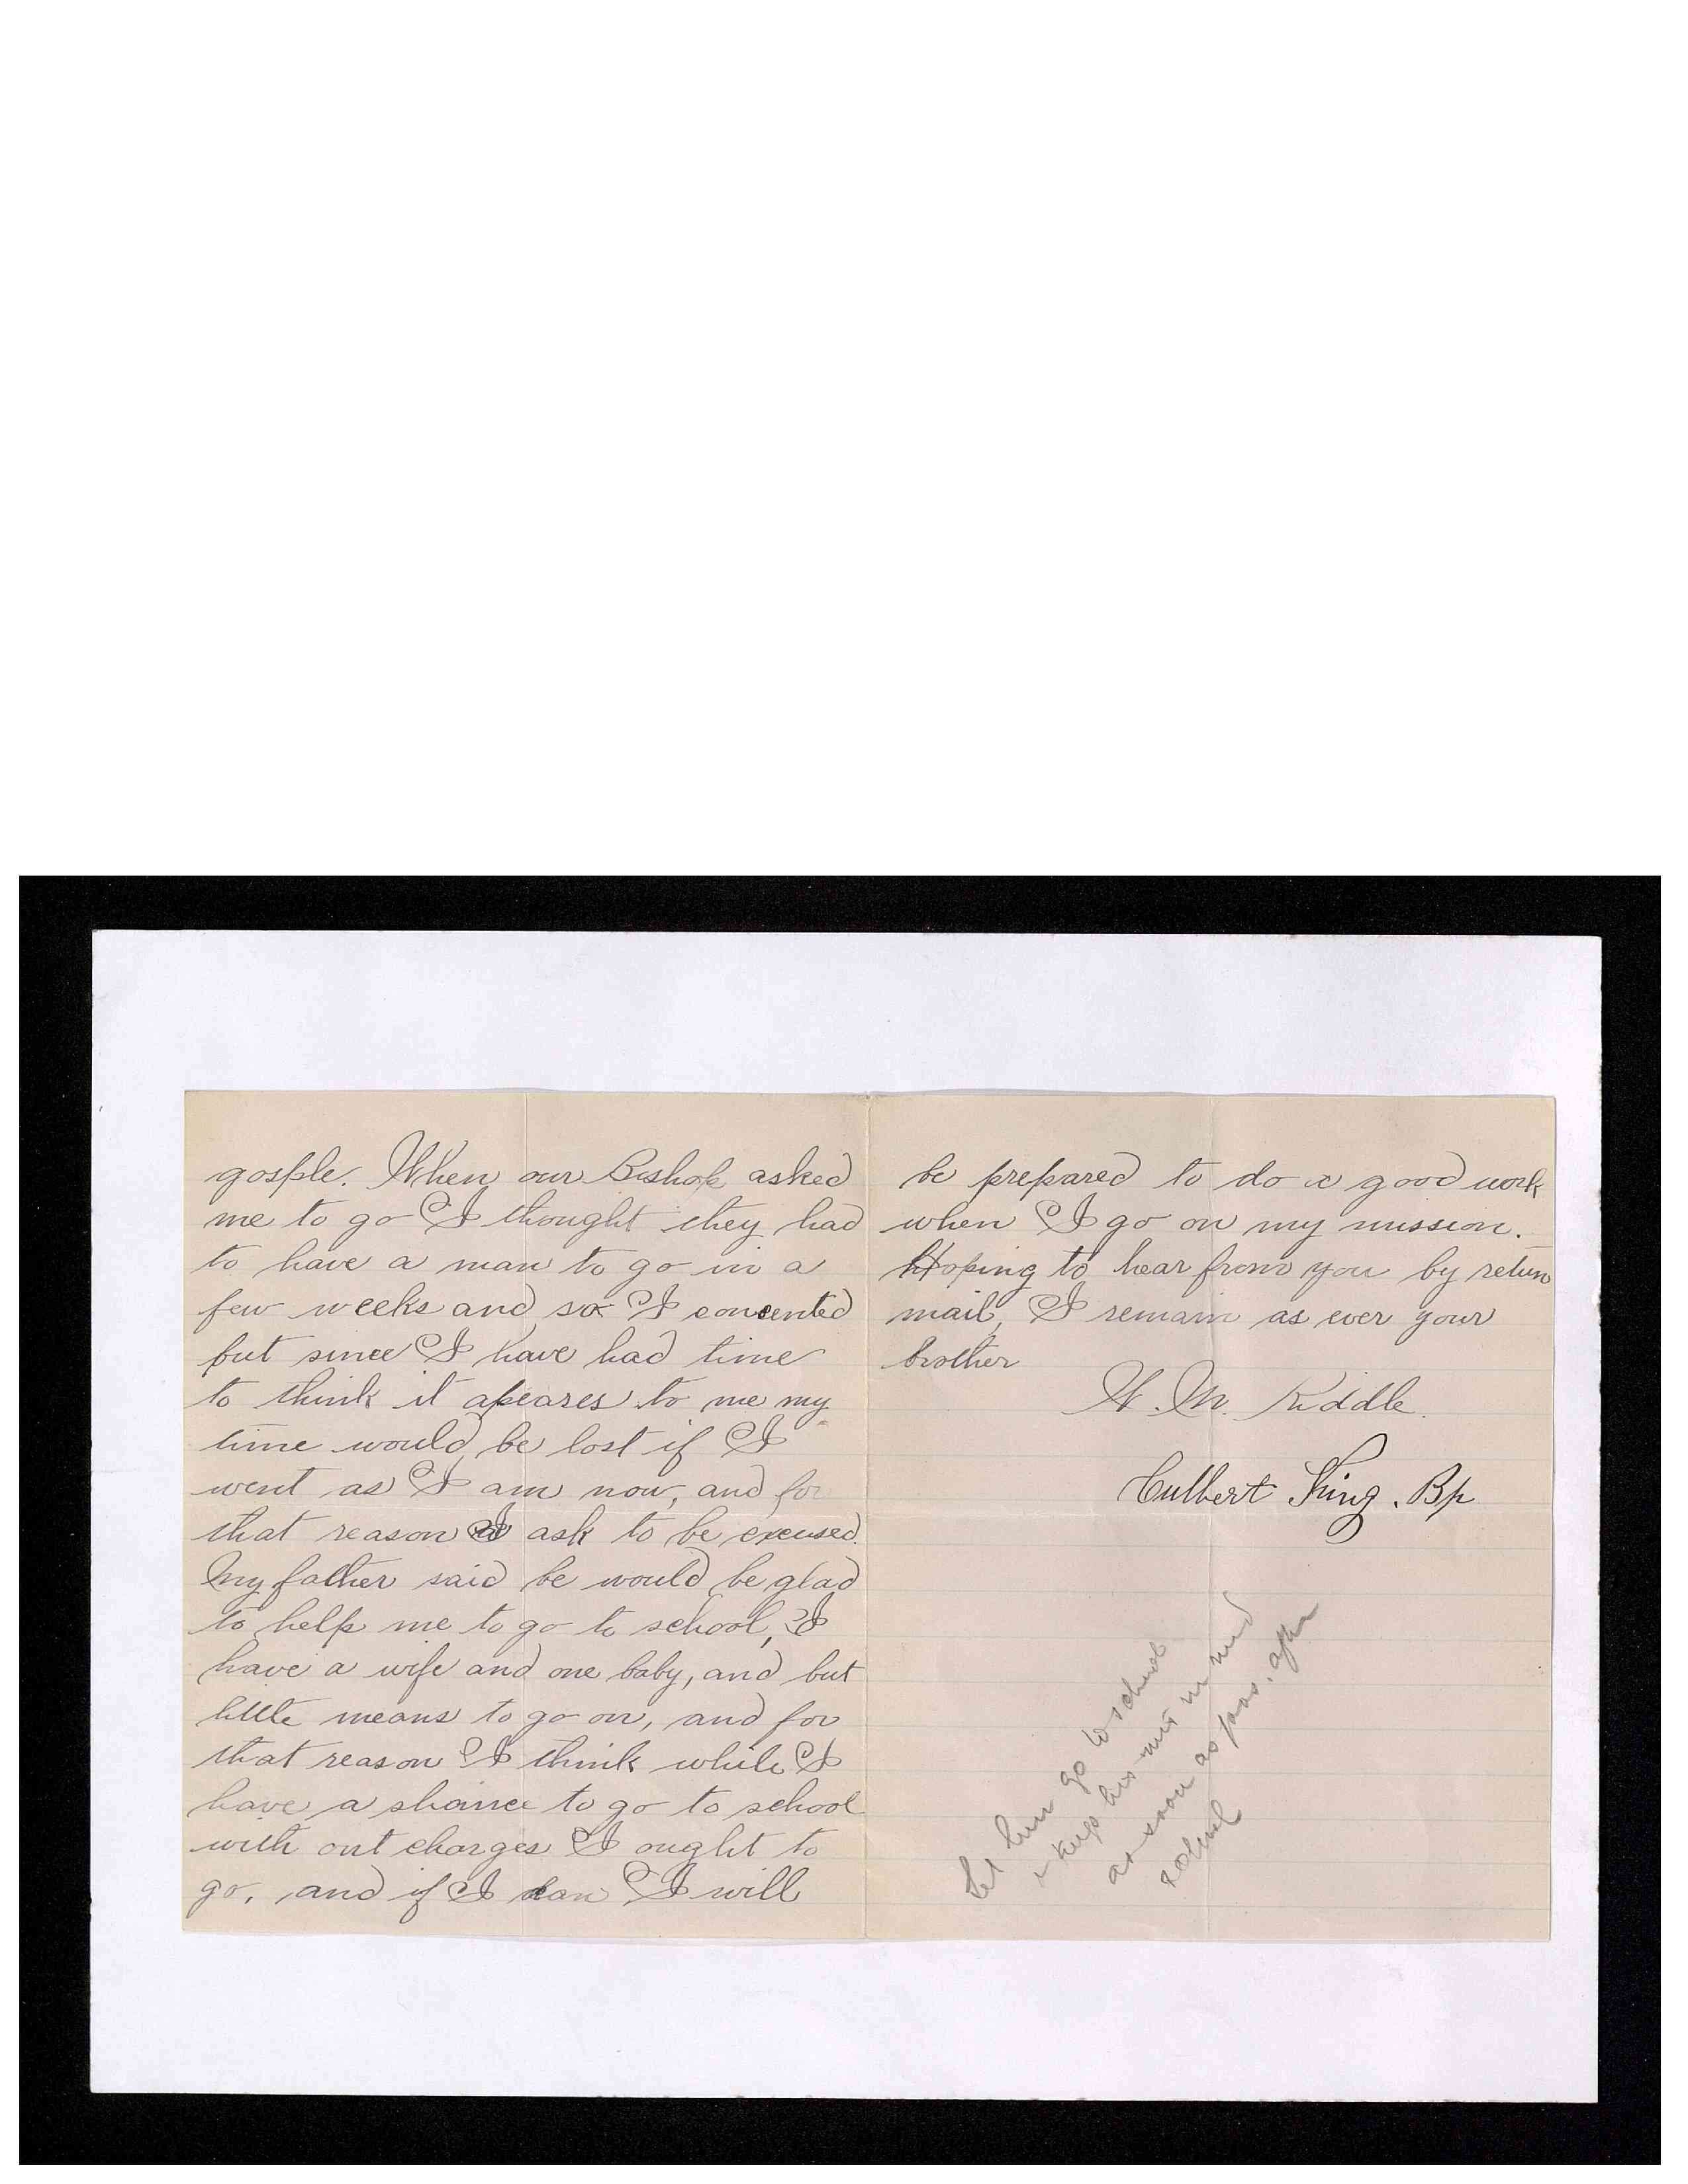 gosple. When our Bishop asked
me to go I thought they had
to have a man to go in a
few weeks and so I concented
but since I have had time
to think it apeares to me my
time would be lost if I
went as I am now, and for
that reason I ask to be excused.
My father said he would be glad
to help me to go to school, I
have a wife and one baby, and but
little means to go on, and for
that reason I think while I
have a shance to go to school
with out charges I ought to
go, and if I can I will
be prepared to do a good work
when I go on my mission.
Hoping to hear from you by return
mail, I remain as ever your
brother
W. M. Riddle.
Culbert King. Bp
Let him go to school
& keep his mis in mind
as soon as poss. after
school